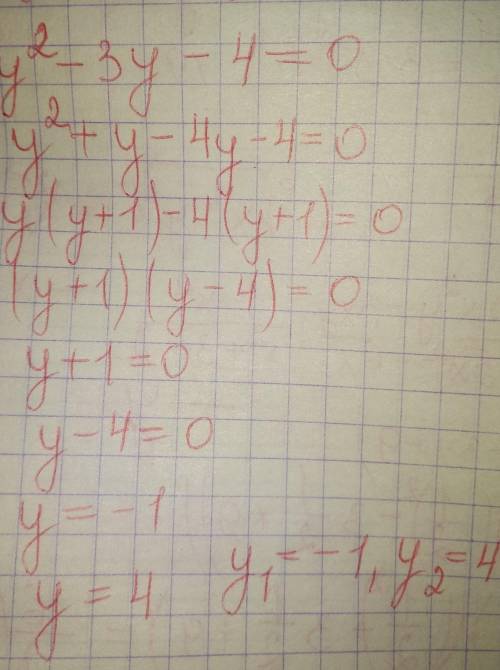 y² - 3y - 4 = 0
y² + y - 4y - 4 = 0
y(y+1) - 4(y+1) = 0
(y+1)(y-4) = 0
y + 1 = 0
y - 4 = 0
y = -1
y = 4
y₁ = -1, y₂ = 4